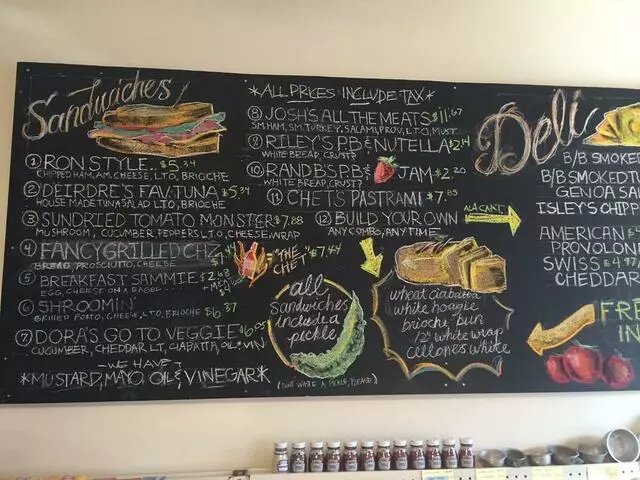 Sandwiches
① RON STYLE.. $5.34
CHIPPED HAM, AM. CHEESE, LTO, BRIOCHE
② DEIRDRE'S FAV. TUNA $5.34
HOUSE MADE TUNA SALAD LTO, BRIOCHE
③ SUNDRIED TOMATO MONSTER $7.88
MUSHROOM, CUCUMBER, PEPPERS, LTO, CHEESE, WRAP
④ FANCY GRILLED CHZ
BREAD, PROSCIUTTO, CHEESE
⑤ BREAKFAST SAMMIE $2.68
EGG, CHEESE ON A BAGEL...
⑥ SHROOMIN'
PORTO, CHEESE, LTO, BRIOCHE $6.37
⑦ DORA'S GO TO VEGGIE $6.05
CUCUMBER, CHEDDAR, LT, CIABATTA, OIL & VIN
-WE HAVE-
*MUSTARD, MAYO, OIL & VINEGAR*
*ALL PRICES INCLUDE TAX*
⑧ JOSH'S ALL THE MEATS $11.67
SM.HAM, SM.TURKEY, SALAMI, PROV, LTO, MUST
⑨ RILEY'S PB & NUTELLA $2.14
WHITE BREAD, CRUST?
⑩ R AND B'S PB & JAM $2.20
WHITE BREAD, CRUST?
⑪ CHET'S PASTRAMI $7.85
⑫ BUILD YOUR OWN
ANY COMBO, ANY TIME
ALA CART
"THE CHET" $7.44
all
sandwiches
include a
pickle
(DON'T WASTE A PICKLE, PLEASE)
wheat ciabatta
white hoagie
brioche bun
12" white wrap
cellones white
Deli
B/B SMOKED
B/B SMOKED TU
GENOA SA
ISLEY'S CHIPP
AMERICAN $4
PROVOLON
SWISS $4.97
CHEDDAR
FRE
IN